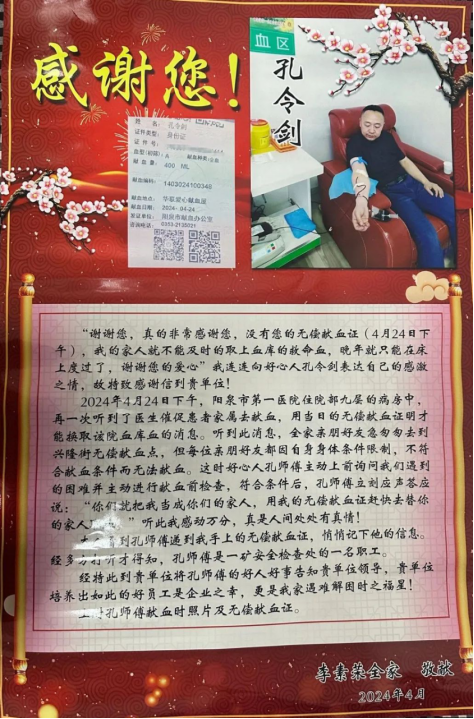 感谢您！
血区
孔令剑
姓名：孔令剑
证件类型：身份证
证件号
血型(初筛)：A
献血量：400 ML
献血编码：1403024100346
献血地点：华联爱心献血屋
献血日期：2024-04-24
发证单位：阳泉市献血办公室
咨询电话：0353-2135021
“谢谢您，真的非常感谢您，没有您的无偿献血证（4月24日下
午），我的家人就不能及时的取上血库的救命血，晚年就只能在床
上度过了，谢谢您的爱心”我连连向好心人孔令剑表达自己的感激
之情，故特致感谢信到贵单位！
2024年4月24日下午，阳泉市第一医院住院部九层的病房中，
再一次听到了医生催促患者家属去献血，用当日的无偿献血证明才
能换取该院血库血的消息。听到此消息，全家亲朋好友急匆匆去到
兴隆街无偿献血点，但每位亲朋好友都因自身身体条件限制，不符
合献血条件而无法献血。这时好心人孔师傅主动上前询问我们遇到
的困难并主动进行献血前检查，符合条件后，孔师傅立刻应声答应
说：“你们就把我当成你们的家人，用我的无偿献血证赶快去替你
的家人 ”听此我感动万分，真是人间处处有真情！
到孔师傅递到我手上的无偿献血证，悄悄记下他的信息。
经多方打听才得知，孔师傅是一矿安全检查处的一名职工。
经特此到贵单位将孔师傅的好人好事告知贵单位领导，贵单位
培养出如此的好员工是企业之幸，更是我家遇难解困时之福星！
上附孔师傅献血时照片及无偿献血证。
李素荣全家 敬献
2024年4月